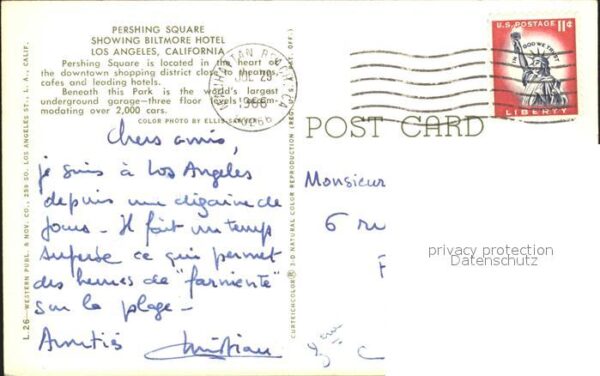 PERSHING SQUARE
SHOWING BILTMORE HOTEL
LOS ANGELES, CALIFORNIA
Pershing Square is located in the heart of
the downtown shopping district close to theatres,
cafes and leading hotels.
Beneath this Park is the world's largest
underground garage—three floor levels accom-
modating over 2,000 cars.
COLOR PHOTO BY ELLIS-SAWYER
Chers amis,
je suis à Los Angeles
depuis une dizaine de
jours - Il fait un temps
superbe ce qui permet
des heures de "farniente"
sur la plage -
Amitiés Christian
L.26—WESTERN PUBL. & NOV. CO., 259 SO. LOS ANGELES ST., L. A., CALIF.
CURTEICHCOLOR® 3-D NATURAL COLOR REPRODUCTION (REG. U. S. PAT. OFF.)
JUL 29
1966
U.S. POSTAGE 11¢
IN GOD WE TRUST
LIBERTY
POST CARD
Monsieur
6 ru
privacy protection
Datenschutz